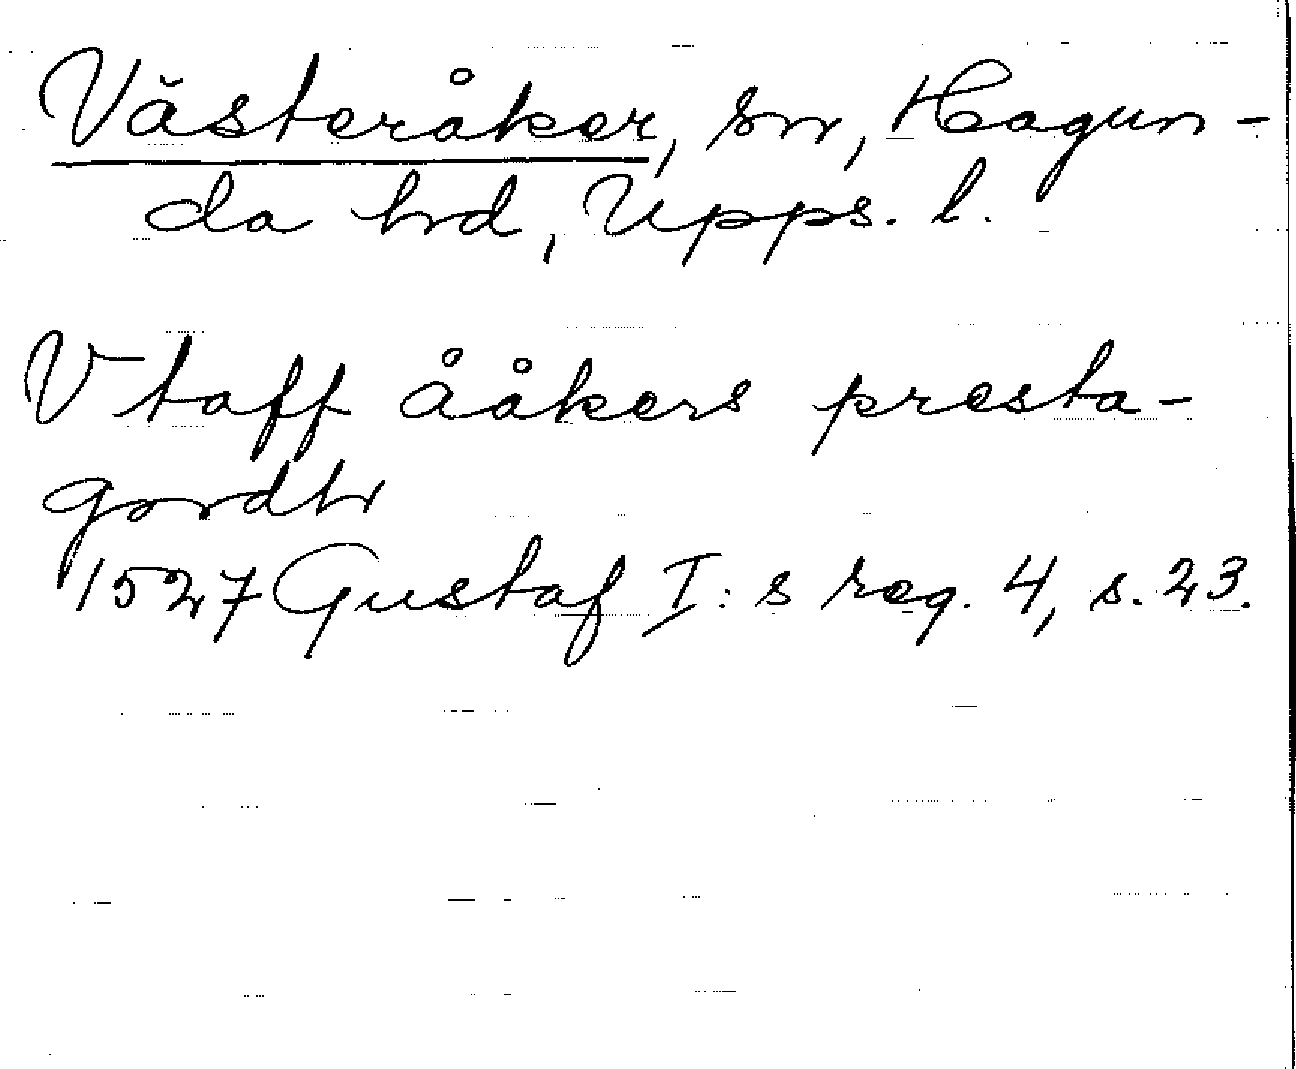 Västeråker, sn, Hagun-
da hrd, Upps. l.
Vtaff ååkers presta-
gordh
1527 Gustaf I:s reg. 4, s. 23.